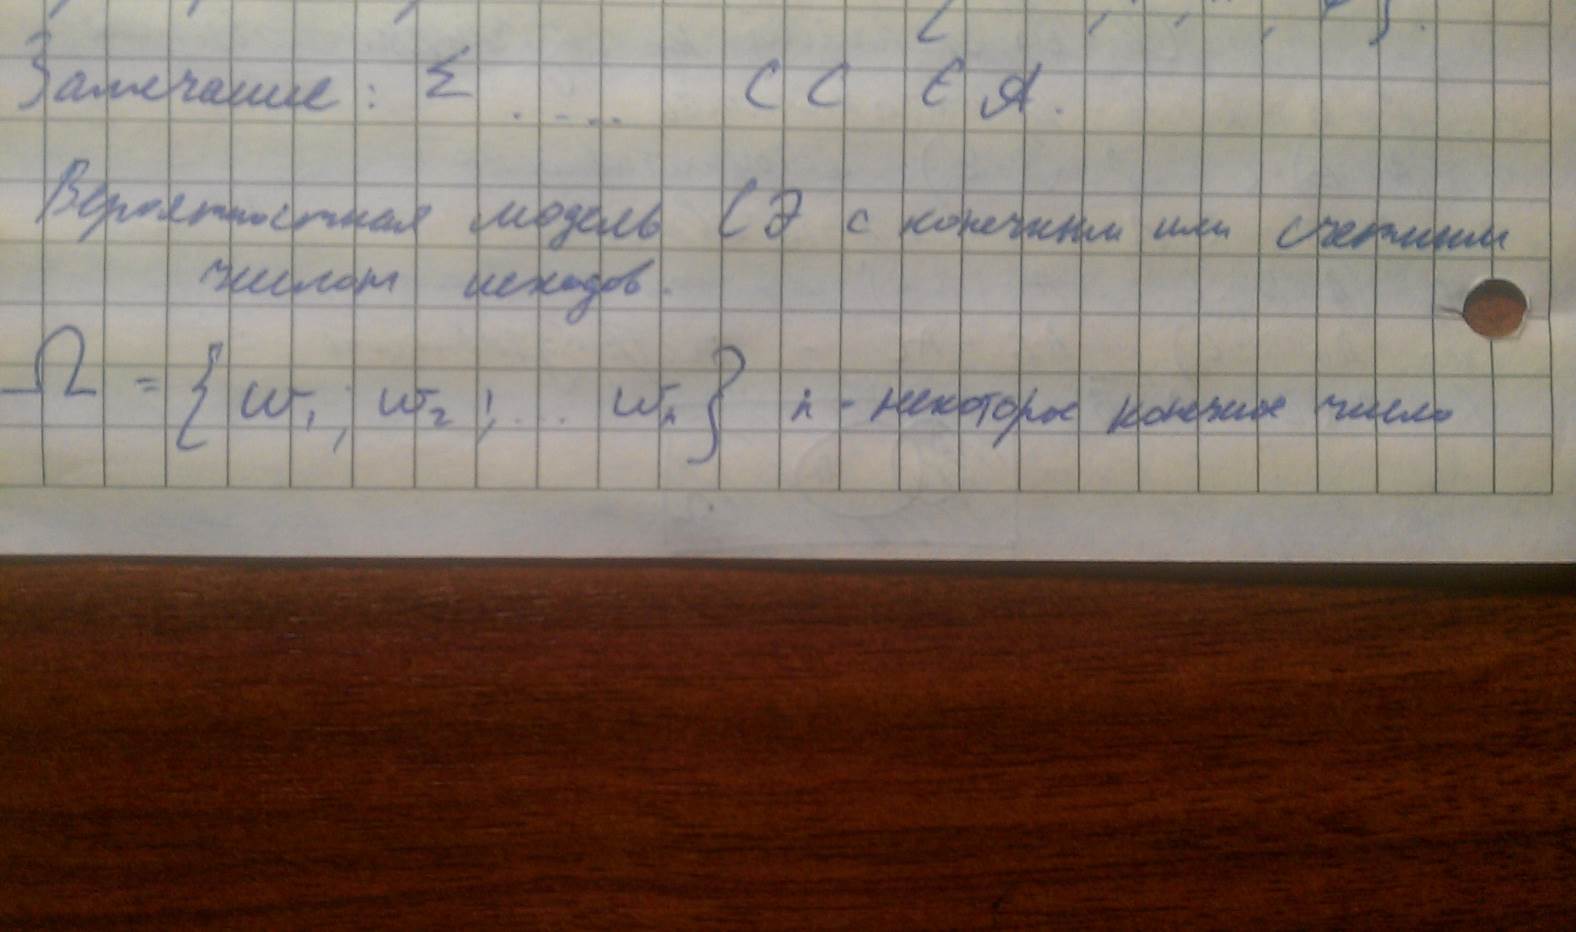 Замечание: Σ ..... С С ∈ A.
Вероятностная модель СЭ с конечным или счетным
числом исходов.
Ω = { w₁; w₂; ... wₙ } n - некоторое конечное число